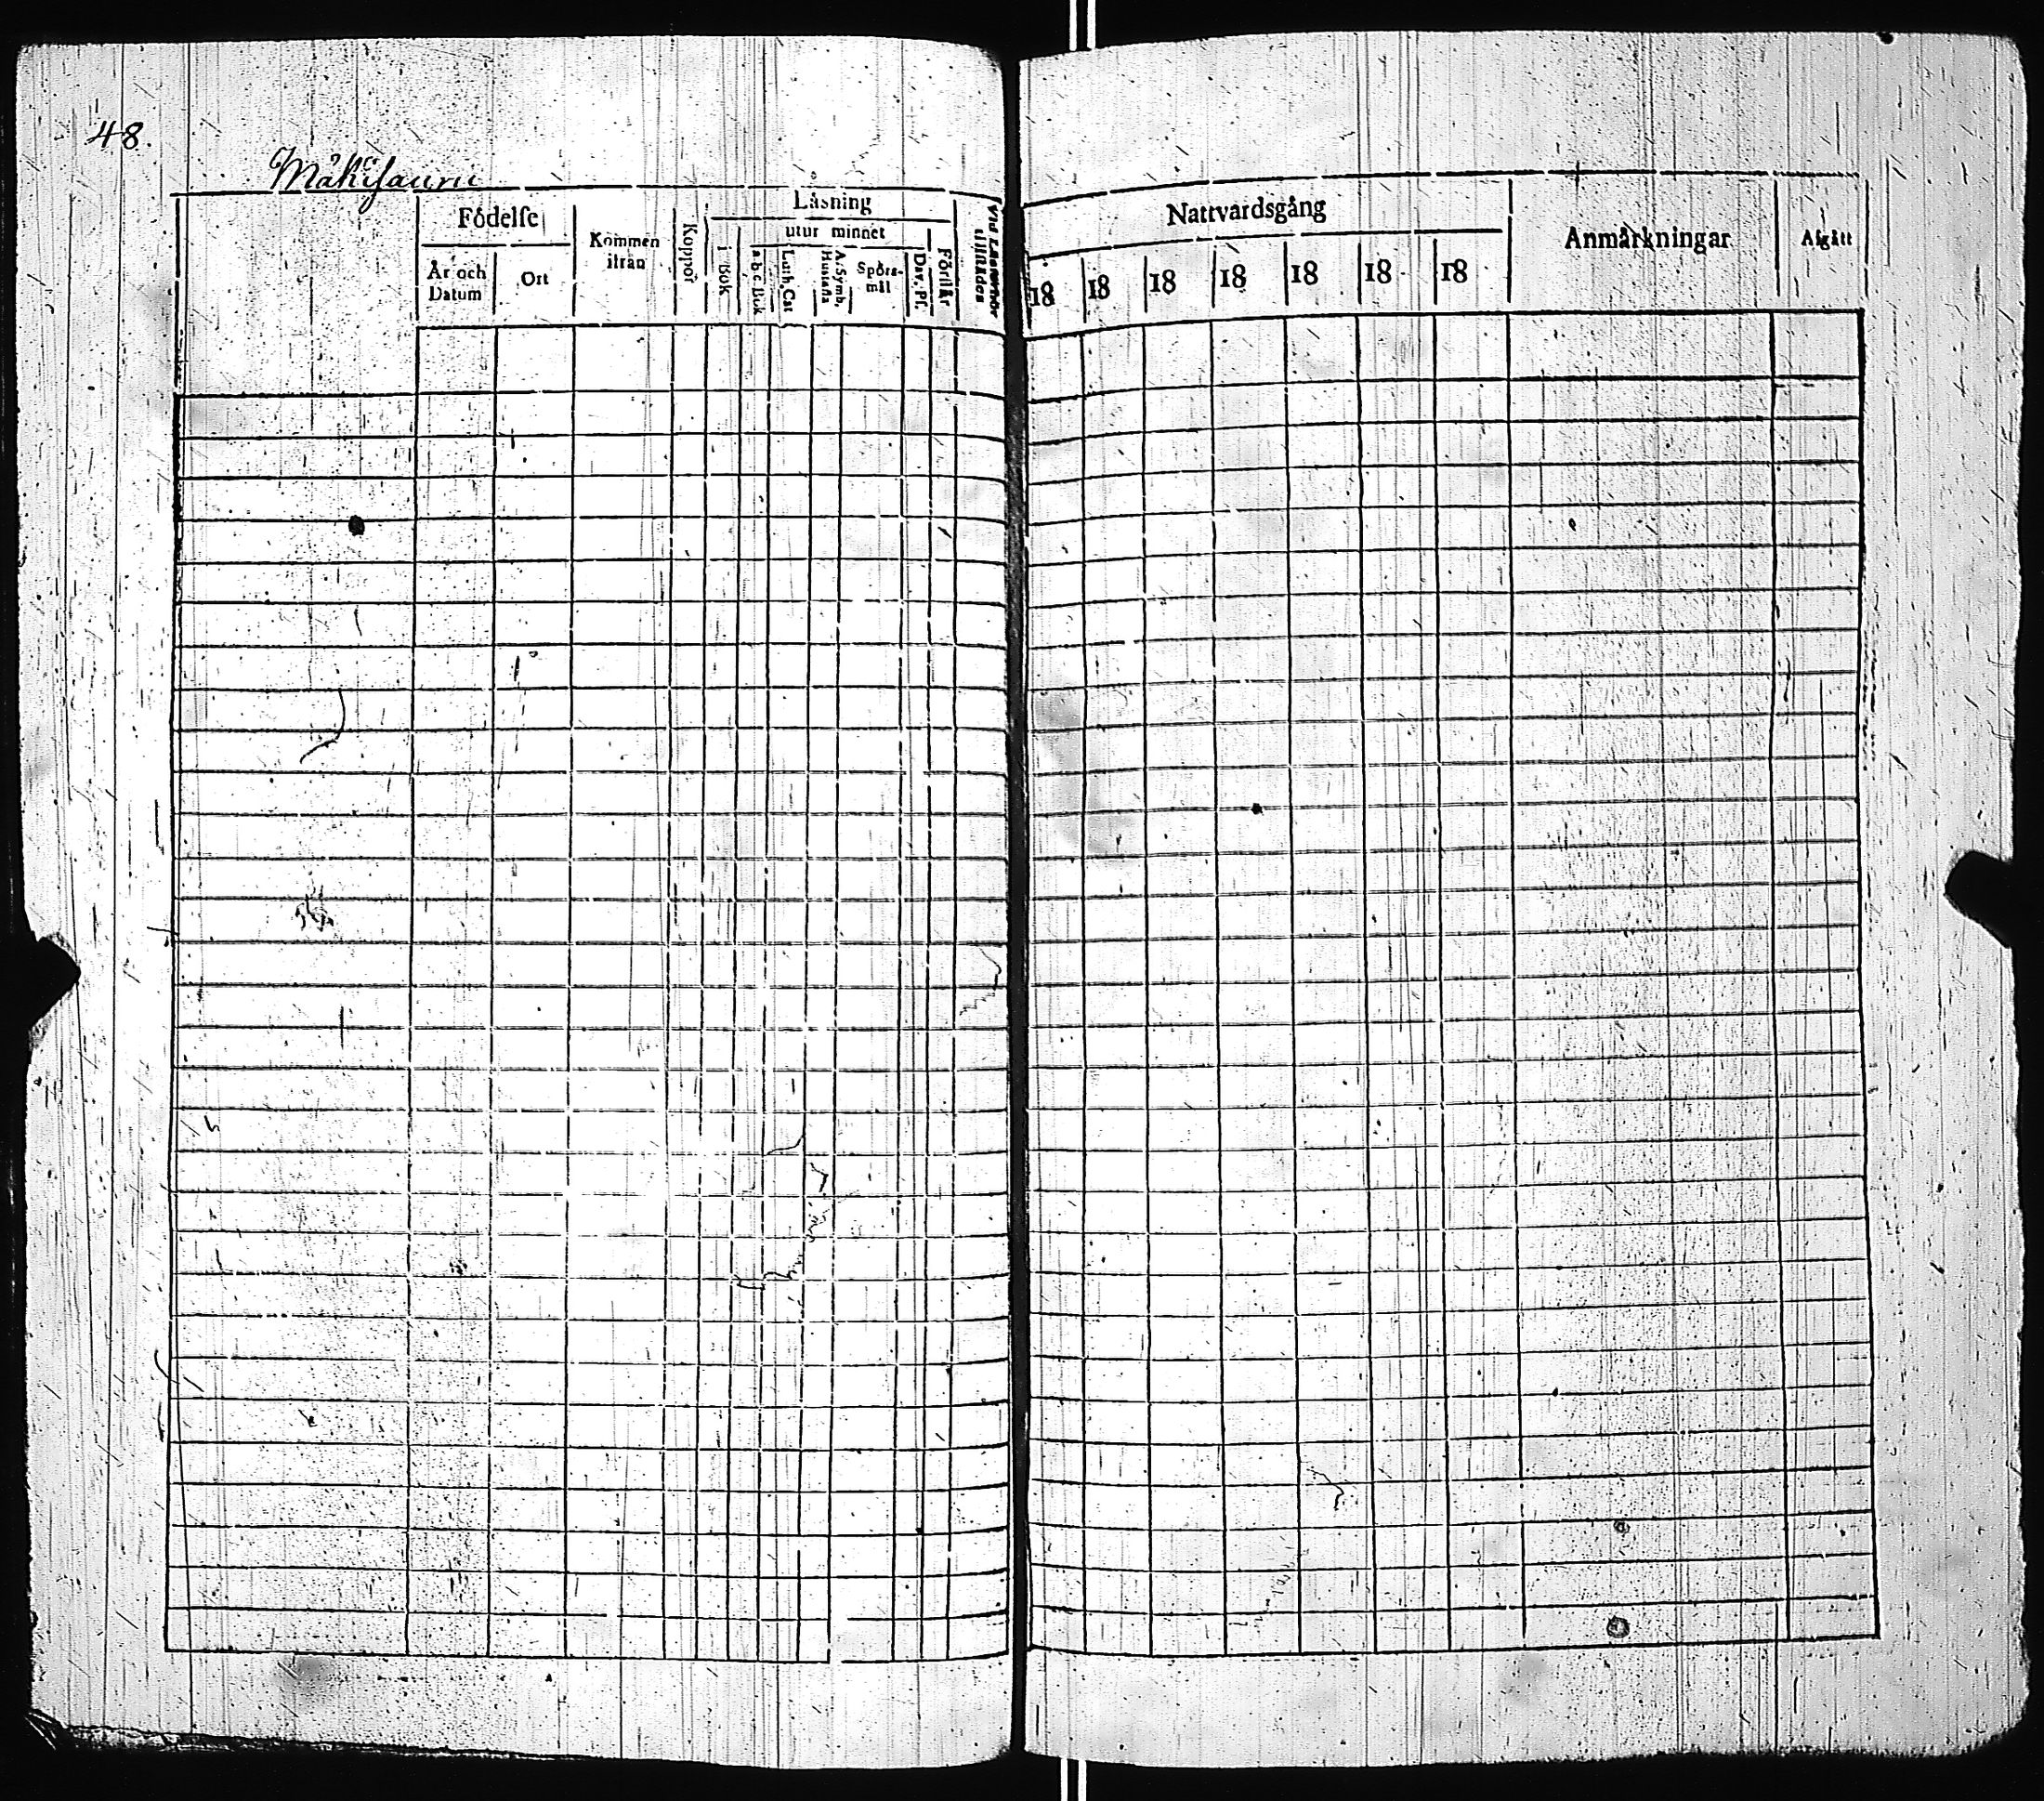 48.
Mäkisauru
Födelse
År och Datum
Ort
Kommen ifrån
Koppor
Läsning
i Bok
utur minnet
a b c Bok
Luth. Cat
A. Symb. Hustafla
Spörs-mål
Dav. Ps.
Förstår
Vid Läsemöt tillstädes
Nattvardsgång
18 18 18 18 18 18 18
Anmärkningar
Afgått